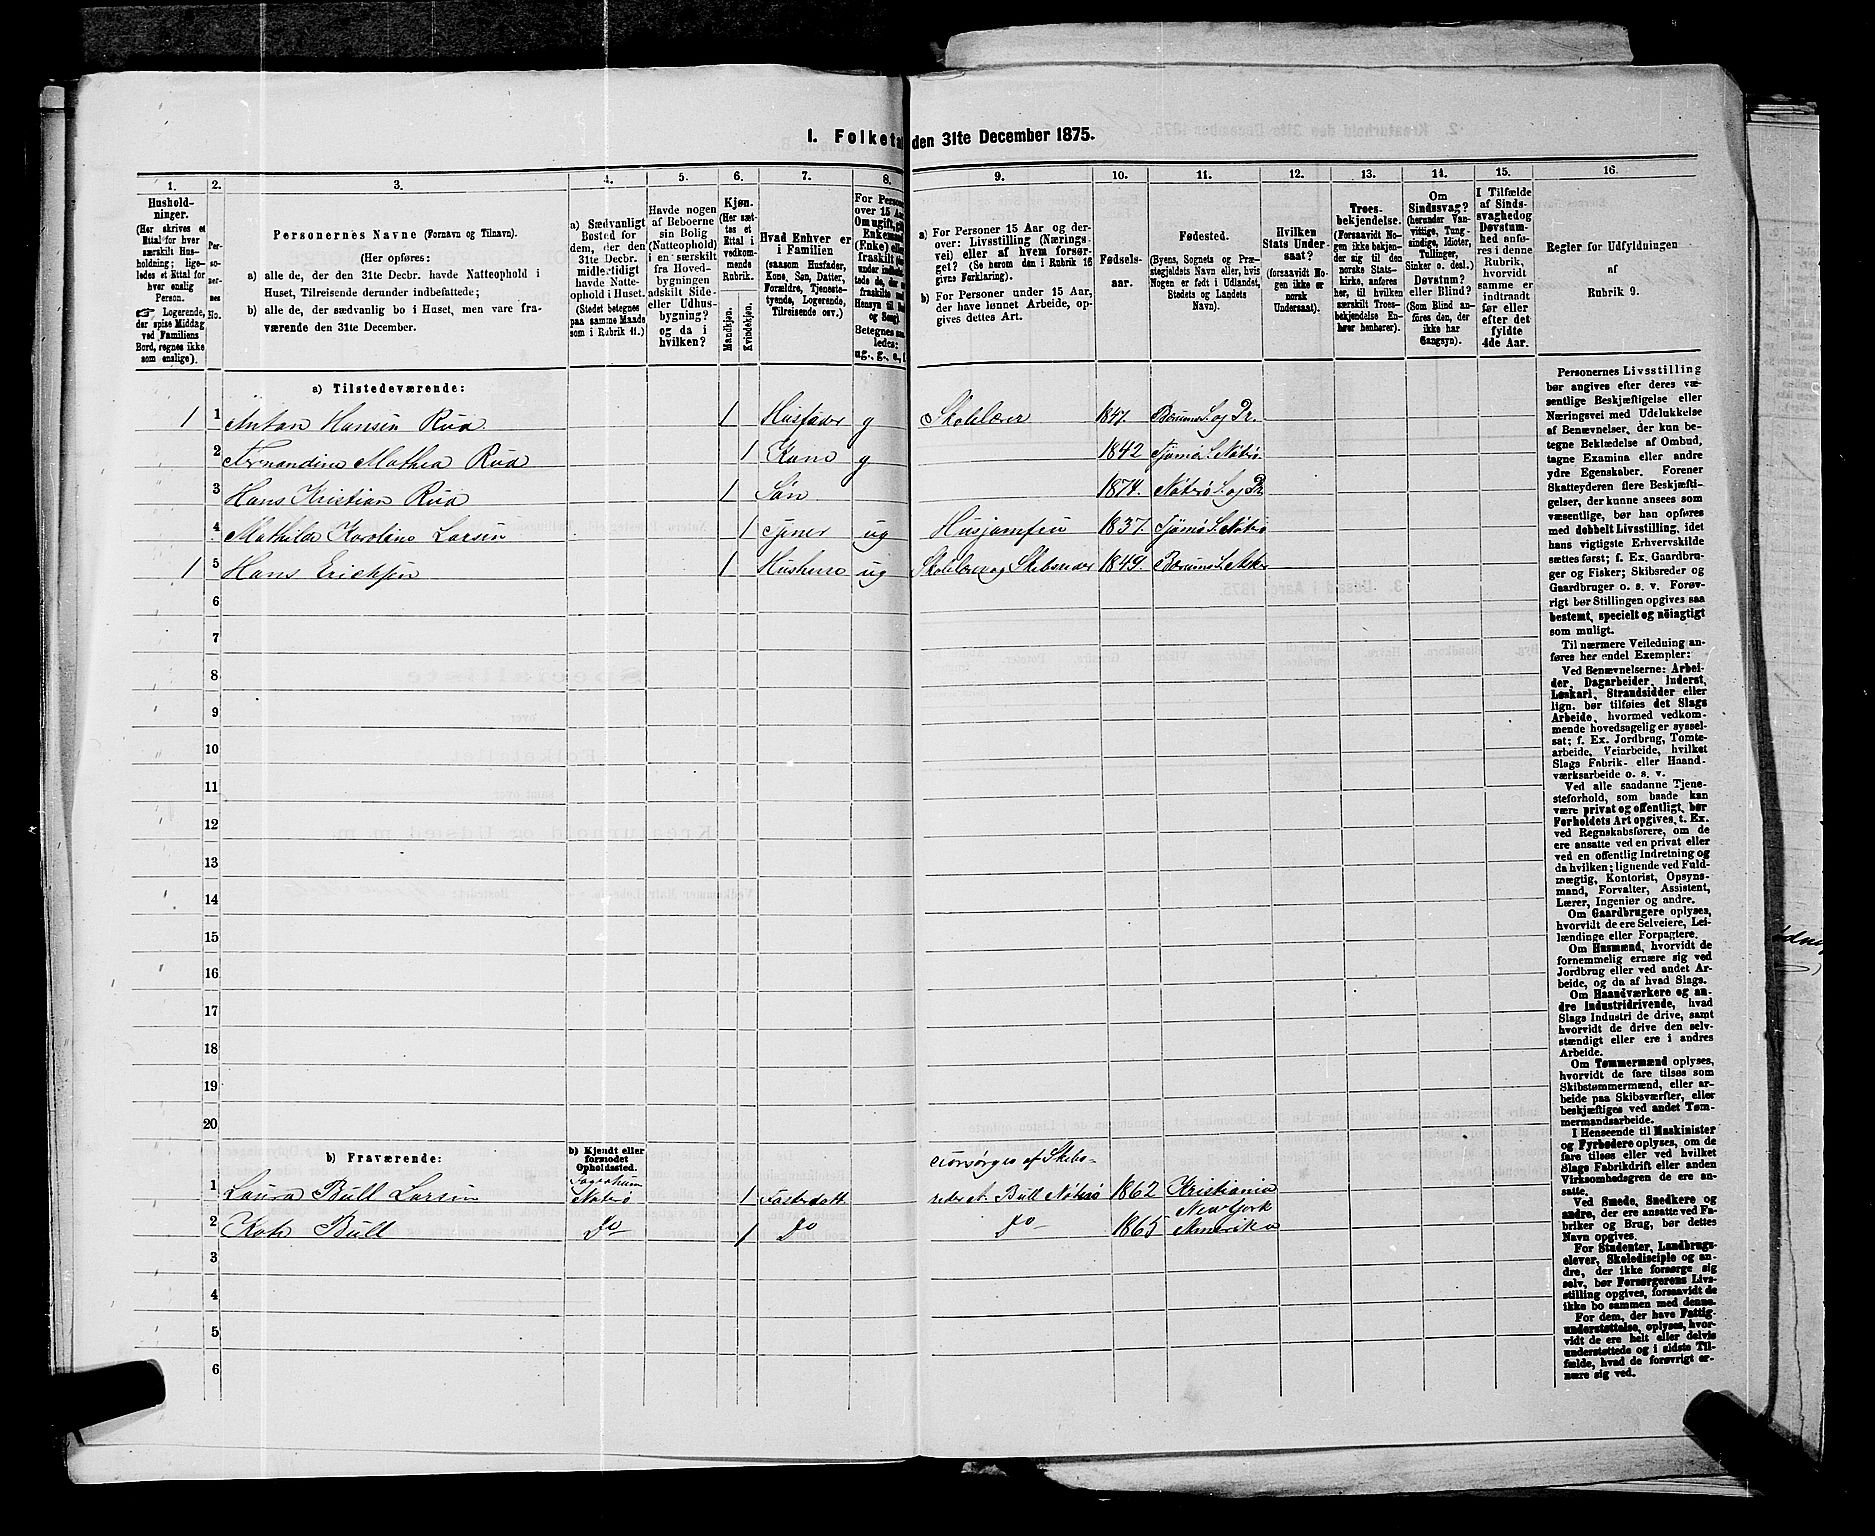 I. Folketa den 31te December 1875.
1. 2. 3. 4. 5. 6. 7. 8. 9. 10. 11. 12. 13. 14. 15. 16.
Hushold-
ninger.
(Her skrives et
Ettal for hver
særskilt Hus-
holdning; lige-
ledes et Ettal for
hver enslig
Person.
☞ Logerende,
der spise Middag
ved Familiens
Bord, regnes ikke
som enslige).
Per-
so-
ner-
nes
No.
Personernes Navne (Fornavn og Tilnavn).
(Her opføres:
a) alle de, der den 31te Decbr. havde Natteophold i
Huset, Tilreisende derunder indbefattede;
b) alle de, der sædvanlig bo i Huset, men vare fra-
værende den 31te December.
a) Sædvanligt
Bosted for
dem, der den
31te Decbr.
midlertidigt
havde Natte-
ophold i Huset.
(Stedet betegnes
paa samme Maade
som i Rubrik 11.)
Havde nogen
af Beboerne
sin Bolig
(Natteophold)
i en særskilt
fra Hoved-
bygningen
adskilt Side-
eller Udhus-
bygning?
og da i
hvilken?
Kjøn.
(Her sæt-
tes et
Ettal i
vedkom-
mende
Rubrik.
Mandkjøn.
Kvindekjøn.
Hvad Enhver er
i Familien
(saasom Husfader,
Kone, Søn, Datter,
Forældre, Tjeneste-
tyende, Logerende,
Tilreisende osv.)
For Person
over 15 Aar
Om ugift, gift
Enkemand
(Enke) eller
fraskilt
Betegnes saa-
ledes:
ug., g., e., f.
a) For Personer 15 Aar og der-
over: Livsstilling (Nærings-
vei) eller af hvem forsør-
get? (Se herom den i Rubrik 16
givne Forklaring).
b) For Personer under 15 Aar,
der have lønnet Arbeide, op-
gives dettes Art.
Fødsels-
aar.
Fødested.
(Byens, Sognets og Præ-
stegjeldets Navn eller, hvis
Nogen er født i Udlandet,
Stedets og Landets
Navn).
Hvilken
Stats Under-
saat?
(forsaavidt No-
gen ikke er
norsk
Undersaat).
Troes-
bekjendelse.
(Forsaavidt No-
gen ikke bekjen-
der sig til den
norske Stats-
kirke, anføres
her, til hvilken
særskilt Troes-
bekjendelse En-
hver henhører).
Om
Sindssvag?
(herunder Van-
vittige, Tung-
sindige, Idioter,
Tullinger,
Sinker o. desl.)
Døvstum?
eller Blind?
(Som Blind an-
føres den, der
ikke har
Gangsyn).
I Tilfælde
af Sinds-
svaghed og
Døvstum-
hed anfø-
res i denne
Rubrik,
hvorvidt
samme er
indtraadt
før eller
efter det
fyldte
4de Aar.
Regler for Udfyldningen
af
Rubrik 9.
a) Tilstedeværende:
1 1 Anton Hansen Rüd. 1 Husfader g Skolelærer 1847. Bærums S. og Pr.
2 Fernandine Mathea Rüd 1 Kone g 1842 Tjømø S. Nøtrø.
3 Hans Kristian Rüd 1 Søn 1874. Nøtrø S. og Pr.
4 Mathilde Karoline Larsen 1 tjener ug Husjomfru 1837. Tjømø S. Nøtrø
1 5 Hans Ericksen 1 ug Skolelærer og Skibsreder 1849. Bærums S. Asker
6
7
8
9
10
11
12
13
14
15
16
17
18
19
20
b) Fraværende:
b) Kjendt eller
formodet
Opholdssted.
1 Laura Bull Larsen Nøterø 1 Fosterdatt forsørges af Skibs-
reder A. Bull Nøterø 1862 Kristiania
2 Kate Bull Do 1 Do Do 1865 New York
Amerika
3
4
5
6
Personernes Livsstilling
bør angives efter deres væ-
sentlige Beskjæftigelse eller
Næringsvei med Udelukkelse
af Benævnelser, der kun be-
tegne Beklædelse af Ombud,
tagne Examina eller andre
ydre Egenskaber. Forener
Skatteyderen flere Beskjæfti-
gelser, der kunne ansees som
væsentlige, bør han opføres
med dobbelt Livsstilling, idet
hans vigtigste Erhvervskilde
sættes først; f. Ex. Gaardbru-
ger og Fisker; Skibsreder og
Gaardbruger o. s. v. Forøv-
rigt bør Stillingen opgives saa
bestemt, specielt og nöiagtigt
som muligt.
Til nærmere Veiledning an-
føres her endel Exempler:
Ved Benævnelserne: Arbei-
der, Dagarbeider, Inderst,
Løskarl, Strandsidder eller
lign. bør tilføies det Slags
Arbeide, hvormed vedkom-
mende hovedsagelig er syssel-
sat; f. Ex. Jordbrug, Tomte-
arbeide, Veiarbeide, hvilket
Slags Fabrik- eller Haand-
værksarbeide o. s. v.
Ved alle saadanne Tjene-
steforhold, som baade kan
være privat og offentligt, bør
Forholdets Art opgives, t. Ex.
ved Regnskabsførere, om de
ere ansatte ved en privat eller
ved en offentlig Indretning og
da hvilken; lignende ved Fuld-
mægtig, Kontorist, Opsyns-
mand, Forvalter, Assistent,
Lærer, Ingeniør og andre.
Om Gaardbrugere oplyses,
hvorvidt de ere Selveiere, Lei-
lændinge eller Forpagtere.
Om Husmænd, hvorvidt de
fornemmelig ernære sig ved
Jordbrug eller ved andet Ar-
beide, og da af hvad Slags.
Om Haandværkere og an-
dre Industridrivende, hvad
Slags Industri de drive, samt
hvorvidt de drive den selv-
stændigt eller ere i andres
Arbeide.
Om Tømmermænd oplyses,
hvorvidt de fare tilsøs som
Skibstømmermænd, eller ar-
beide paa Skibsværfter, eller
beskjæftiges ved andet Tøm-
mermandsarbeide.
I Henseende til Maskinister
og Fyrbødere oplyses, om de
fare tilsøs eller ved hvilket
Slags Fabrikdrift eller anden
Virksomhedsgren de ere an-
satte.
Ved Smede, Snedkere og
andre, der ere ansatte ved Fa-
briker og Brug, bør dettes
Navn opgives.
For Studenter, Landbrugs-
elever, Skoledisciple og an-
dre, der ikke forsørge sig
selv, bør Forsørgerens Livs-
stilling opgives, forsaavidt de
ikke bo sammen med denne.
For dem, der have Fattig-
understøttelse, oplyses, hvor-
vidt de ere helt eller delvis
understøttede og i sidste Til-
fælde, hvad de forøvrigt er-
nære sig ved.